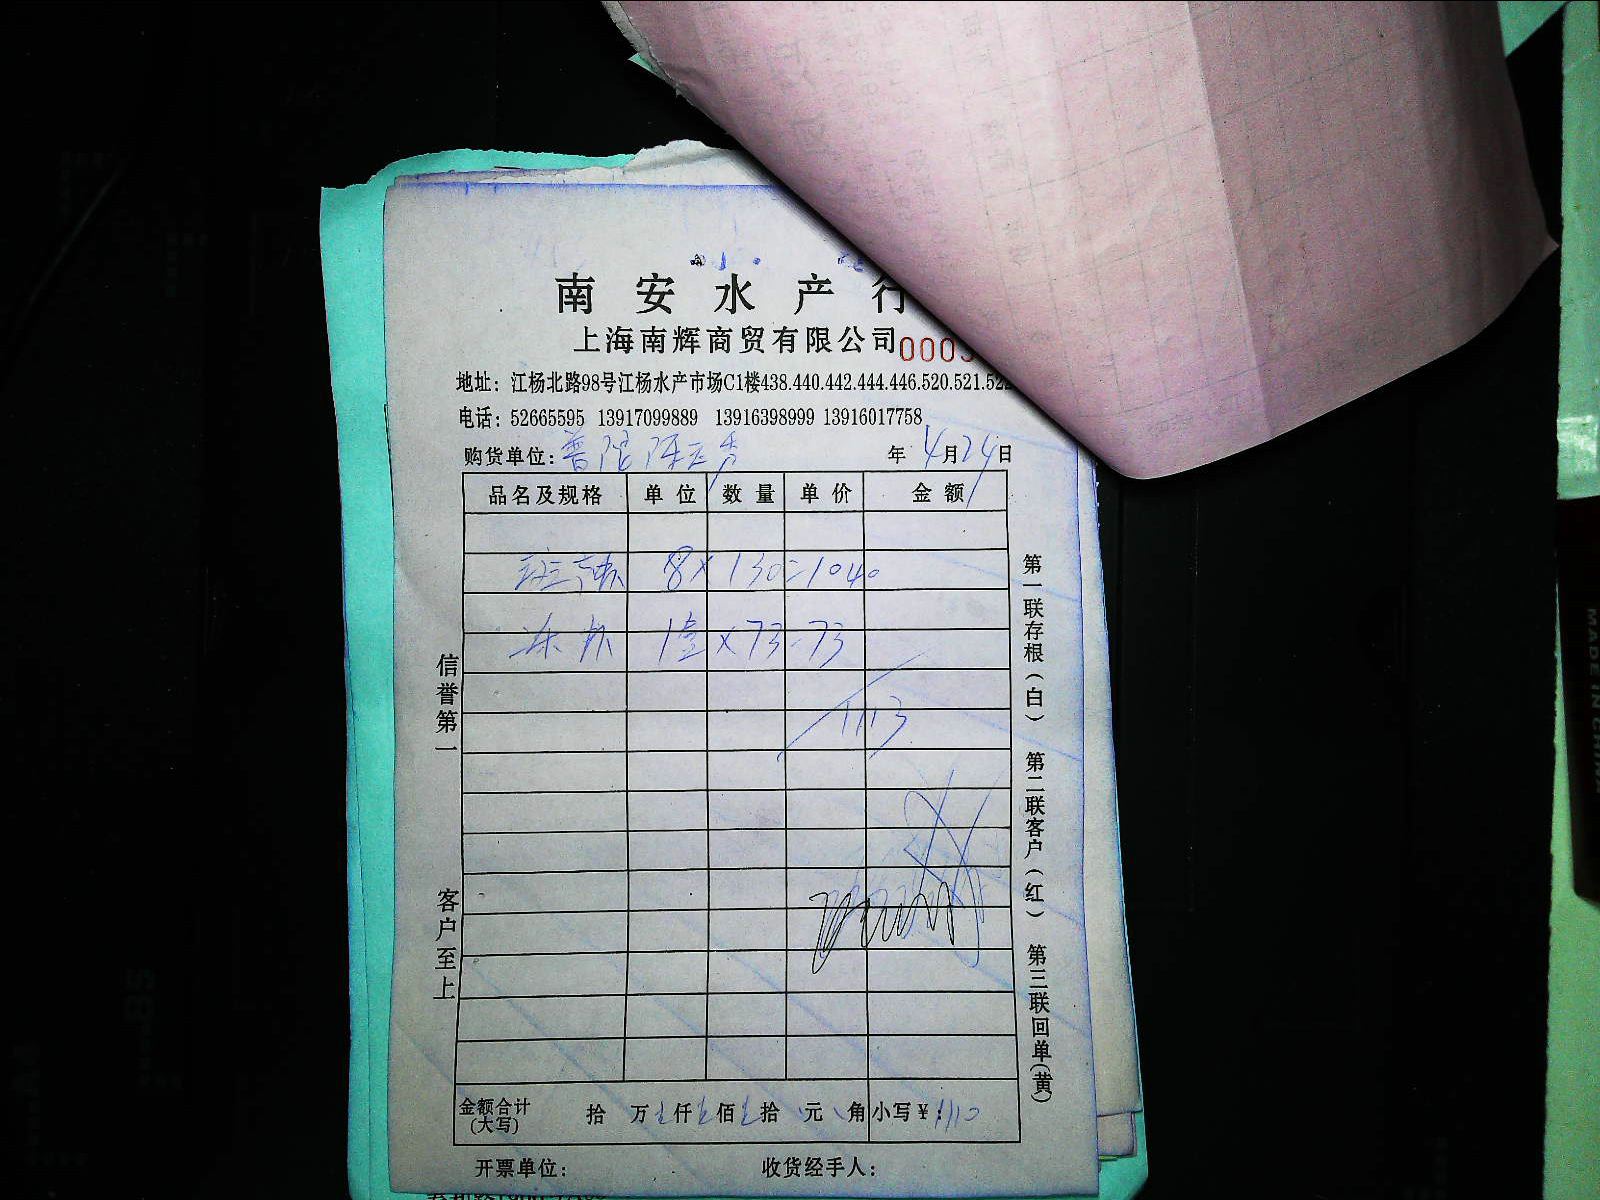 南安水产行
上海南辉商贸有限公司 000
地址：江杨北路98号江杨水产市场C1楼438.440.442.444.446.520.521.522
电话：52665595 13917099889 13916398999 13916017758
购货单位：普陀陈玉秀 年4月24日
品名及规格 单位 数量 单价 金额
8×130=1040
冻 1 ×73=73
1113
信誉第一
客户至上
第一联存根(白) 第二联客户(红) 第三联回单(黄)
金额合计(大写) 拾 万 仟 佰 拾 元 角 小写￥：1110
开票单位： 收货经手人：
MADE IN CHINA